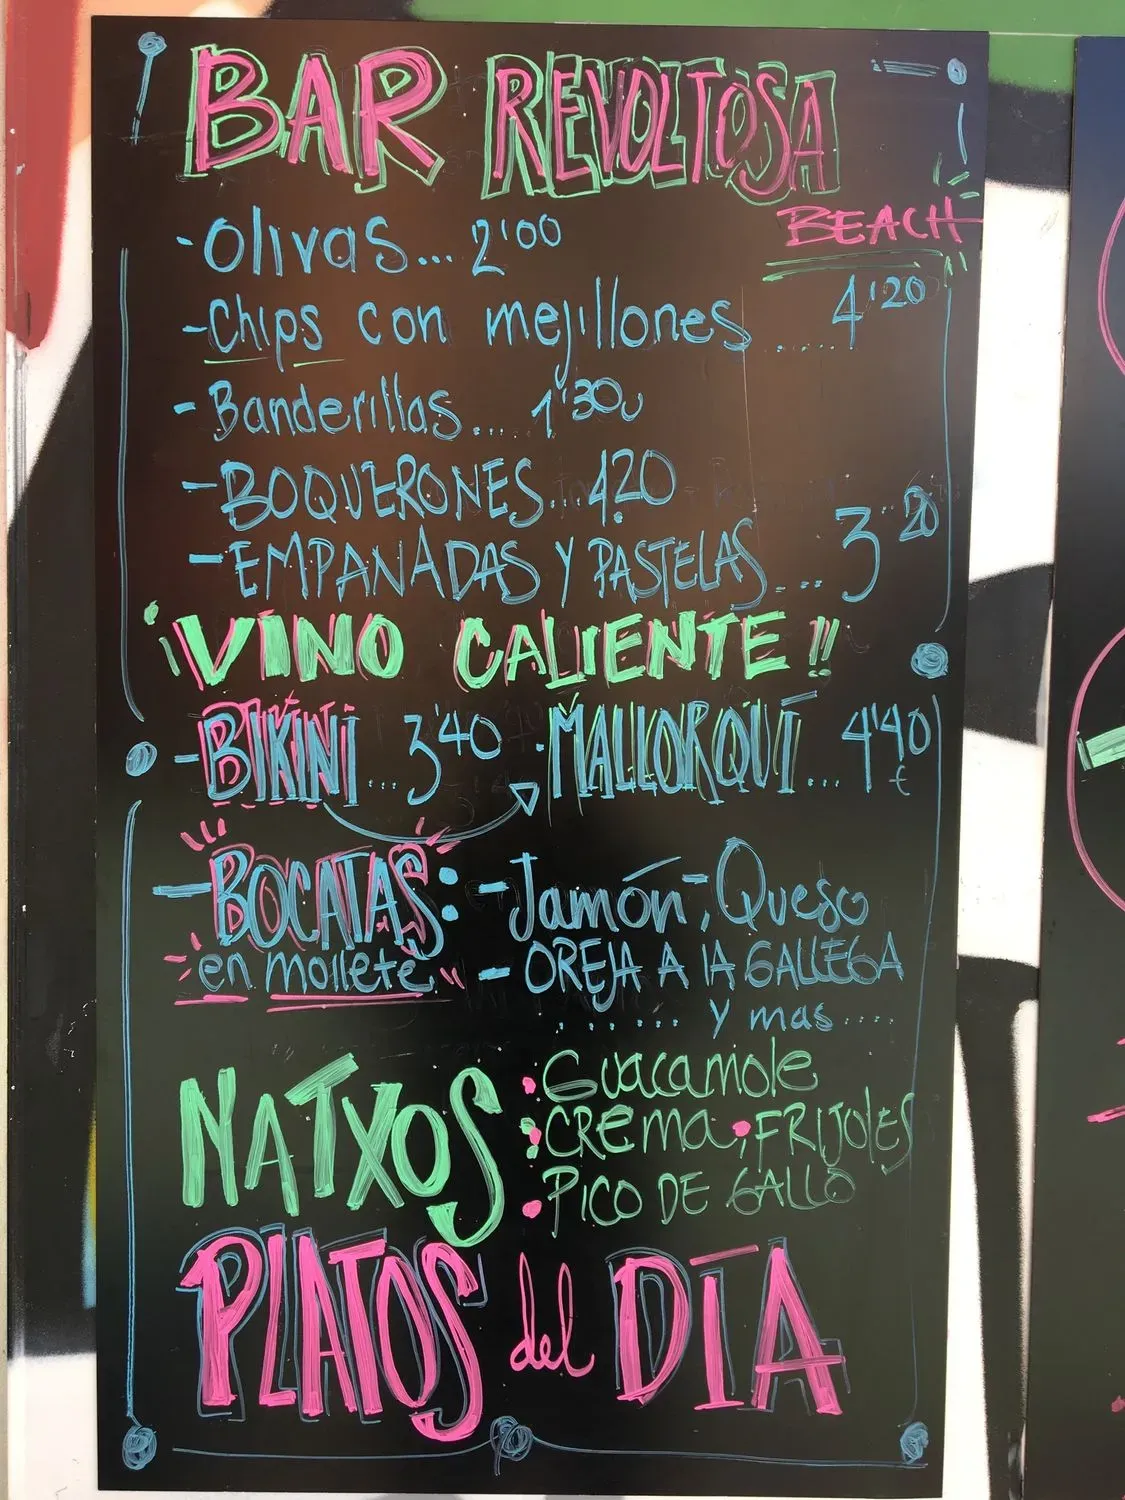 BAR REVOLTOSA
BEACH
-Olivas... 2'00
-Chips con mejillones ..... 4'20
-Banderillas... 1'30u
-BOQUERONES... 4.20
-EMPANADAS Y PASTELAS... 3'20
¡VINO CALIENTE!!
-BIKINI... 3'40 . MALLORQUÍ... 4'40€
-BOCATAS: -Jamón-, Queso
en mollete -OREJA A lA GALLEGA
....... Y mas ....
NATXOS :Guacamole
:CREMA, FRIJOLES
PICO DE GALLO
PLATOS del DÍA